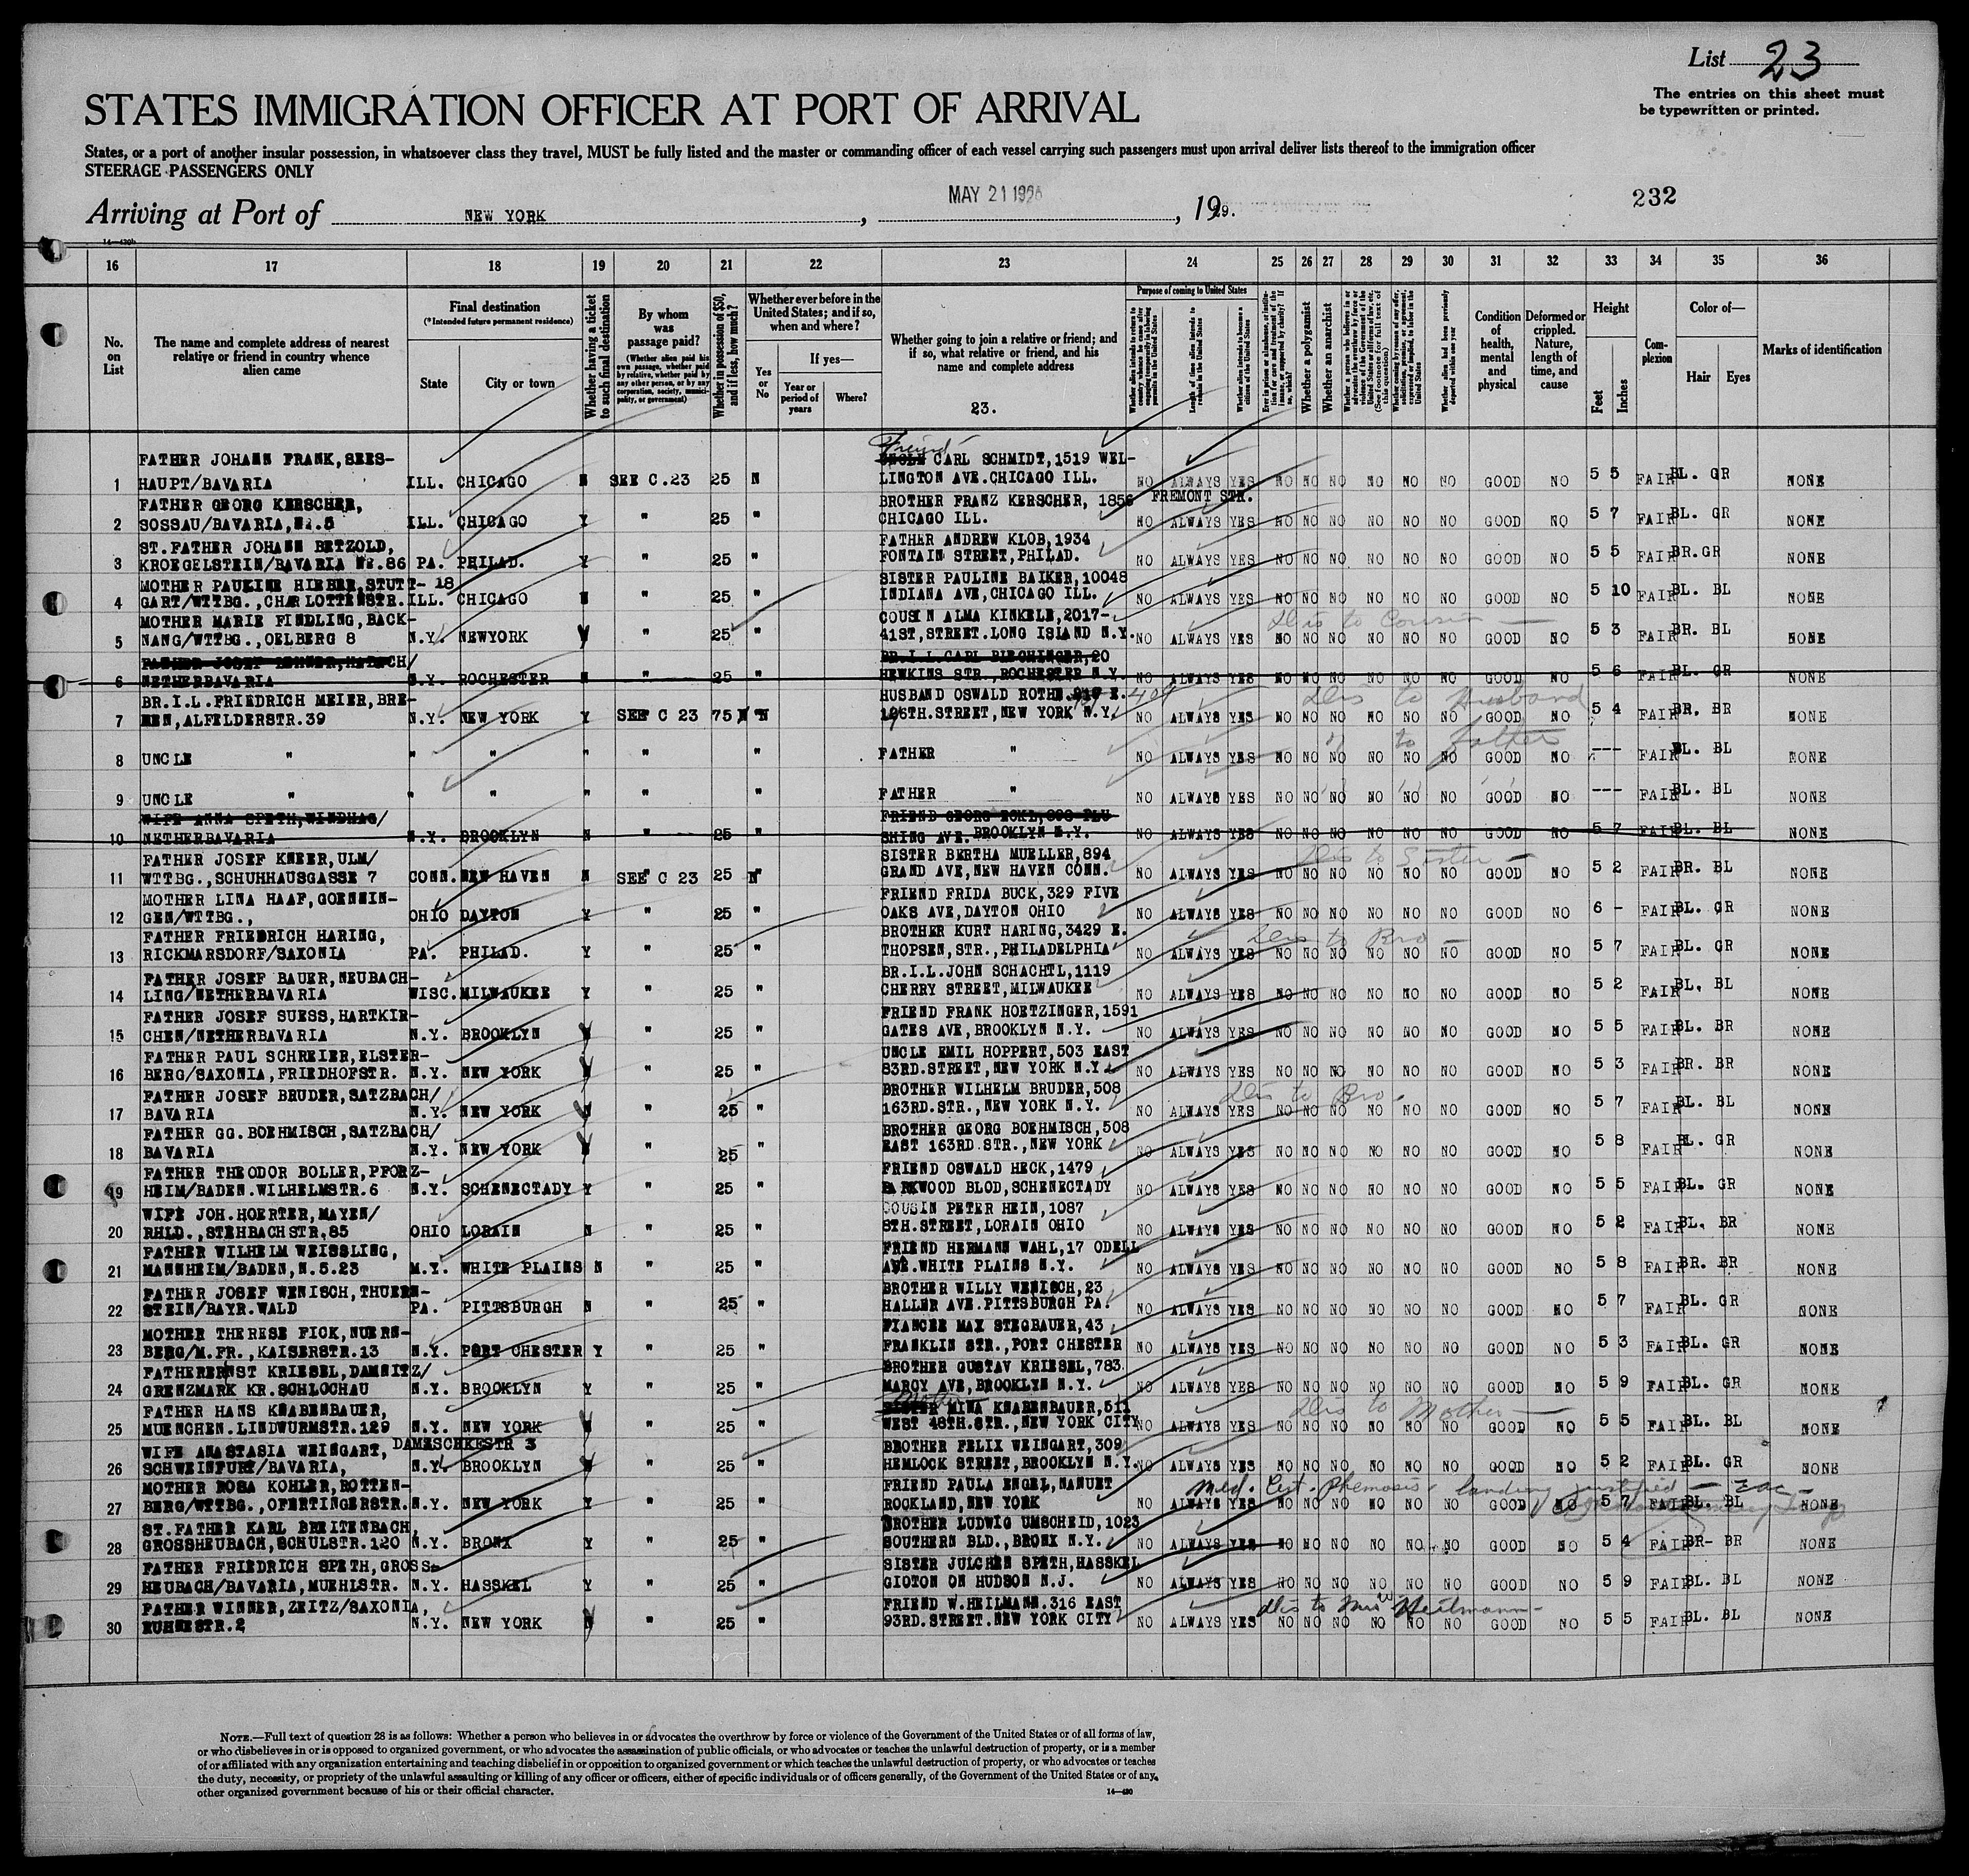 List 23
The entries on this sheet must
be typewritten or printed.
STATES IMMIGRATION OFFICER AT PORT OF ARRIVAL
States, or a port of another insular possession, in whatsoever class they travel, MUST be fully listed and the master or commanding officer of each vessel carrying such passengers must upon arrival deliver lists thereof to the immigration officer
STEERAGE PASSENGERS ONLY
MAY 21 192
232
Arriving at Port of NEW YORK , , 1929.
16 17 18 19 20 21 22 23 24 25 26 27 28 29 30 31 32 33 34 35 36
No. on List
The name and complete address of nearest relative or friend in country whence alien came
Final destination
(*Intended future permanent residence)
State
City or town
Whether having a ticket to such final destination
By whom was passage paid?
(Whether alien paid his own passage, whether paid by relative, whether paid by any other person, or by any corporation, society, municipality, or government)
Whether in possession of $50, and if less, how much?
Whether ever before in the United States; and if so, when and where?
Yes or No
If yes—
Year or period of years
Where?
Whether going to join a relative or friend; and if so, what relative or friend, and his name and complete address
23.
Purpose of coming to United States
Whether a polygamist
Whether an anarchist
Condition of health, mental and physical
Deformed or crippled. Nature, length of time, and cause
Height
Feet
Inches
Complexion
Color of—
Hair
Eyes
Marks of identification
Friend
FATHER JOHANN FRANK, SEES- UNCLE CARL SCHMIDT,1519 WEL-
1 HAUPT/BAVARIA ILL. CHICAGO N SEE C.23 25 N LINGTON AVE.CHICAGO ILL. NO ALWAYS YES NO NO NO NO NO NO GOOD NO 5 5 FAIR BL. GR NONE
FATHER GEORG KERSCHER, BROTHER FRANZ KERSCHER, 1856 FREMONT STR.
2 SOSSAU/BAVARIA,NR.5 ILL. CHICAGO Y " 25 " CHICAGO ILL. NO ALWAYS YES NO NO NO NO NO NO GOOD NO 5 7 FAIR BL. GR NONE
ST.FATHER JOHANN BETZOLD, FATHER ANDREW KLOB,1934
3 KROEGELSTEIN/BAVARIA NR.86 PA. PHILAD. Y " 25 " FONTAIN STREET,PHILAD. NO ALWAYS YES NO NO NO NO NO NO GOOD NO 5 5 FAIR BR.GR NONE
MOTHER PAULINE HIEBER,STUTT- 18 SISTER PAULINE BAIKER,10048
4 GART/WTTBG.,CHARLOTTENSTR. ILL. CHICAGO N " 25 " INDIANA AVE,CHICAGO ILL. NO ALWAYS YES NO NO NO NO NO NO GOOD NO 5 10 FAIR BL. BL NONE
MOTHER MARIE FINDLING,BACK- COUSIN ALMA KINKELE,2017- Dis to Cousin —
5 NANG/WTTBG.,OELBERG 8 N.Y. NEWYORK 25 " 41ST,STREET.LONG ISLAND N.Y. NO ALWAYS YES NO NO NO NO NO NO GOOD NO 5 3 FAIR BR. BL NONE
BR.I.L.CARL 20
6 NETHERBAVARIA N.Y. ROCHESTER N " 25 " HEWKINS STR., ROCHESTER N.Y. NO ALWAYS YES NO NO NO NO NO NO GOOD NO 5 6 FAIR BL. GR NONE
BR.I.L.FRIEDRICH MEIER,BRE- HUSBAND OSWALD ROTHE E. 404 Dis to Husband
7 MEN,ALFELDERSTR.39 N.Y. NEW YORK Y SEE C 23 75 N 126TH.STREET,NEW YORK N.Y. NO ALWAYS YES NO NO NO NO NO NO GOOD NO 5 4 FAIR BR. BR NONE
" to father
8 UNCLE " " " " " " FATHER " NO ALWAYS YES NO NO NO NO NO NO GOOD NO --- FAIR BL. BL NONE
9 UNCLE " " " " " " FATHER " NO ALWAYS YES NO NO NO NO NO NO GOOD NO --- FAIR BL. BL NONE
WIFE ANNA SPETH,WINDHAG/ FRIEND GEORG FLU
10 NETHERBAVARIA N.Y. BROOKLYN N " 25 " SHING AVE. BROOKLYN N.Y. NO ALWAYS YES NO NO NO NO NO NO GOOD NO 5 7 FAIR BL. BL NONE
FATHER JOSEF KNEER,ULM/ SISTER BERTHA MUELLER,894 Dis to Sister —
11 WTTBG.,SCHUHHAUSGASSE 7 CONN. NEW HAVEN N SEE C 23 25 N GRAND AVE,NEW HAVEN CONN. NO ALWAYS YES NO NO NO NO NO NO GOOD NO 5 2 FAIR BR. BL NONE
MOTHER LINA HAAF,GOENNIN- FRIEND FRIDA BUCK,329 FIVE
12 GEN/WTTBG., OHIO DAYTON Y " 25 " OAKS AVE,DAYTON OHIO NO ALWAYS YES NO NO NO NO NO NO GOOD NO 6 - FAIR BL. GR NONE
FATHER FRIEDRICH HARING, BROTHER KURT HARING,3429 E. Dis to Bro —
13 RICKMARSDORF/SAXONIA PA. PHILAD. Y " 25 " THOPSEN,STR.,PHILADELPHIA NO ALWAYS YES NO NO NO NO NO NO GOOD NO 5 7 FAIR BL. GR NONE
FATHER JOSEF BAUER,NEUBACH- BR.I.L.JOHN SCHACHTL,1119
14 LING/NETHERBAVARIA WISC. MILWAUKEE Y " 25 " CHERRY STREET,MILWAUKEE NO ALWAYS YES NO NO NO NO NO NO GOOD NO 5 2 FAIR BL. BL NONE
FATHER JOSEF SUESS,HARTKIR- FRIEND FRANK HOETZINGER,1591
15 CHEN/NETHERBAVARIA N.Y. BROOKLYN " 25 " GATES AVE,BROOKLYN N.Y. NO ALWAYS YES NO NO NO NO NO NO GOOD NO 5 5 FAIR BL. BR NONE
FATHER PAUL SCHREIER,ELSTER- UNCLE EMIL HOPPERT,503 EAST
16 BERG/SAXONIA,FRIEDHOFSTR. N.Y. NEW YORK " 25 " 83RD.STREET,NEW YORK N.Y. NO ALWAYS YES NO NO NO NO NO NO GOOD NO 5 3 FAIR BR. BR NONE
FATHER JOSEF BRUDER,SATZBACH/ BROTHER WILHELM BRUDER,508 Dis to Bro.
17 BAVARIA N.Y. NEW YORK " 25 " 163RD.STR.,NEW YORK N.Y. NO ALWAYS YES NO NO NO NO NO NO GOOD NO 5 7 FAIR BL. BL NONE
FATHER GG.BOEHMISCH,SATZBACH/ BROTHER GEORG BOEHMISCH,508
18 BAVARIA N.Y. NEW YORK " 25 " EAST 163RD.STR.,NEW YORK NO ALWAYS YES NO NO NO NO NO NO GOOD NO 5 8 FAIR BL. GR NONE
FATHER THEODOR BOLLER,PFORZ- FRIEND OSWALD HECK,1479
19 HEIM/BADEN.WILHELMSTR.6 N.Y. SCHENECTADY Y " 25 " PARKWOOD BLOD,SCHENECTADY NO ALWAYS YES NO NO NO NO NO NO GOOD NO 5 5 FAIR BL. GR NONE
WIFE JOH.HOERTER,MAYEN/ COUSIN PETER HEIN,1087
20 RHLD.,STEHBACHSTR.85 OHIO LORAIN N " 25 " 8TH.STREET,LORAIN OHIO NO ALWAYS YES NO NO NO NO NO NO GOOD NO 5 2 FAIR BL. BR NONE
FATHER WILHELM WEISSLING, FRIEND HERMANN WAHL,17 ODELL
21 MANNHEIM/BADEN,N.5.23 M.Y. WHITE PLAINS N " 25 " AVE.WHITE PLAINS N.Y. NO ALWAYS YES NO NO NO NO NO NO GOOD NO 5 8 FAIR BR. BR NONE
FATHER JOSEF WENISCH,THUERN- BROTHER WILLY WENISCH,23
22 STEIN/BAYR.WALD PA. PITTSBURGH N " 25 " HALLER AVE.PITTSBURGH PA. NO ALWAYS YES NO NO NO NO NO NO GOOD NO 5 7 FAIR BL. GR NONE
MOTHER THERESE FICK,NUERN- FIANCEE MAX STEGBAUER,43
23 BERG/M.FR.,KAISERSTR.13 N.Y. PORT CHESTER Y " 25 " FRANKLIN STR.,PORT CHESTER NO ALWAYS YES NO NO NO NO NO NO GOOD NO 5 3 FAIR BL. GR NONE
FATHER ERNST KRIESEL,DAMNITZ/ BROTHER GUSTAV KRIESEL,783
24 GRENZMARK KR.SCHLOCHAU N.Y. BROOKLYN Y " 25 " MARCY AVE,BROOKLYN N.Y. NO ALWAYS YES NO NO NO NO NO NO GOOD NO 5 9 FAIR BL. GR NONE
Mother
FATHER HANS KNABENBAUER, SISTER MINA KNABENBAUER,511 Dis to Mother —
25 MUENCHEN.LINDWURMSTR.129 N.Y. NEW YORK " 25 " WEST 48TH.STR.,NEW YORK CITY NO ALWAYS YES NO NO NO NO NO NO GOOD NO 5 5 FAIR BL. BL NONE
WIFE ANASTASIA WEINGART, DAMESCHKESTR 3 BROTHER FELIX WEINGART,309
26 SCHWEINFURT/BAVARIA, N.Y. BROOKLYN " 25 " HEMLOCK STREET,BROOKLYN N.Y. NO ALWAYS YES NO NO NO NO NO NO GOOD NO 5 2 FAIR BL. GR NONE
MOTHER ROSA KOHLER,ROTTEN- FRIEND PAULA ENGEL,NANUET Med. Cert. Phemosis landing justified —
27 BERG/WTTBG.,OFERTINGERSTR. N.Y. NEW YORK Y " 25 " ROCKLAND,NEW YORK NO ALWAYS YES NO NO NO NO NO NO GOOD NO 5 7 FAIR BL. BL NONE
ST.FATHER KARL BREITENBACH, BROTHER LUDWIG UMSCHEID,1023
28 GROSSHEUBACH,SCHULSTR.120 N.Y. BRONX Y " 25 " SOUTHERN BLD.,BRONX N.Y. NO ALWAYS YES NO NO NO NO NO NO GOOD NO 5 4 FAIR BR- BR NONE
FATHER FRIEDRICH SPETH,GROSS- SISTER JULCHEN SPETH,HASSKEL
29 HEUBACH/BAVARIA,MUEHLSTR. N.Y. HASSKEL Y " 25 " GIOTON ON HUDSON N.J. NO ALWAYS YES NO NO NO NO NO NO GOOD NO 5 9 FAIR BL. BL NONE
FATHER WINNER,ZEITZ/SAXONIA, FRIEND W.HEILMANN.316 EAST dis to Mrs Heilmann —
30 RUHNESTR.2 N.Y. NEW YORK " 25 " 93RD.STREET.NEW YORK CITY NO ALWAYS YES NO NO NO NO NO NO GOOD NO 5 5 FAIR BL. BL NONE
NOTE.—Full text of question 28 is as follows: Whether a person who believes in or advocates the overthrow by force or violence of the Government of the United States or of all forms of law,
or who disbelieves in or is opposed to organized government, or who advocates the assassination of public officials, or who advocates or teaches the unlawful destruction of property, or is a member
of or affiliated with any organization entertaining and teaching disbelief in or opposition to organized government or which teaches the unlawful destruction of property, or who advocates or teaches
the duty, necessity, or propriety of the unlawful assaulting or killing of any officer or officers, either of specific individuals or of officers generally, of the Government of the United States or of any
other organized government because of his or their official character.
14—430